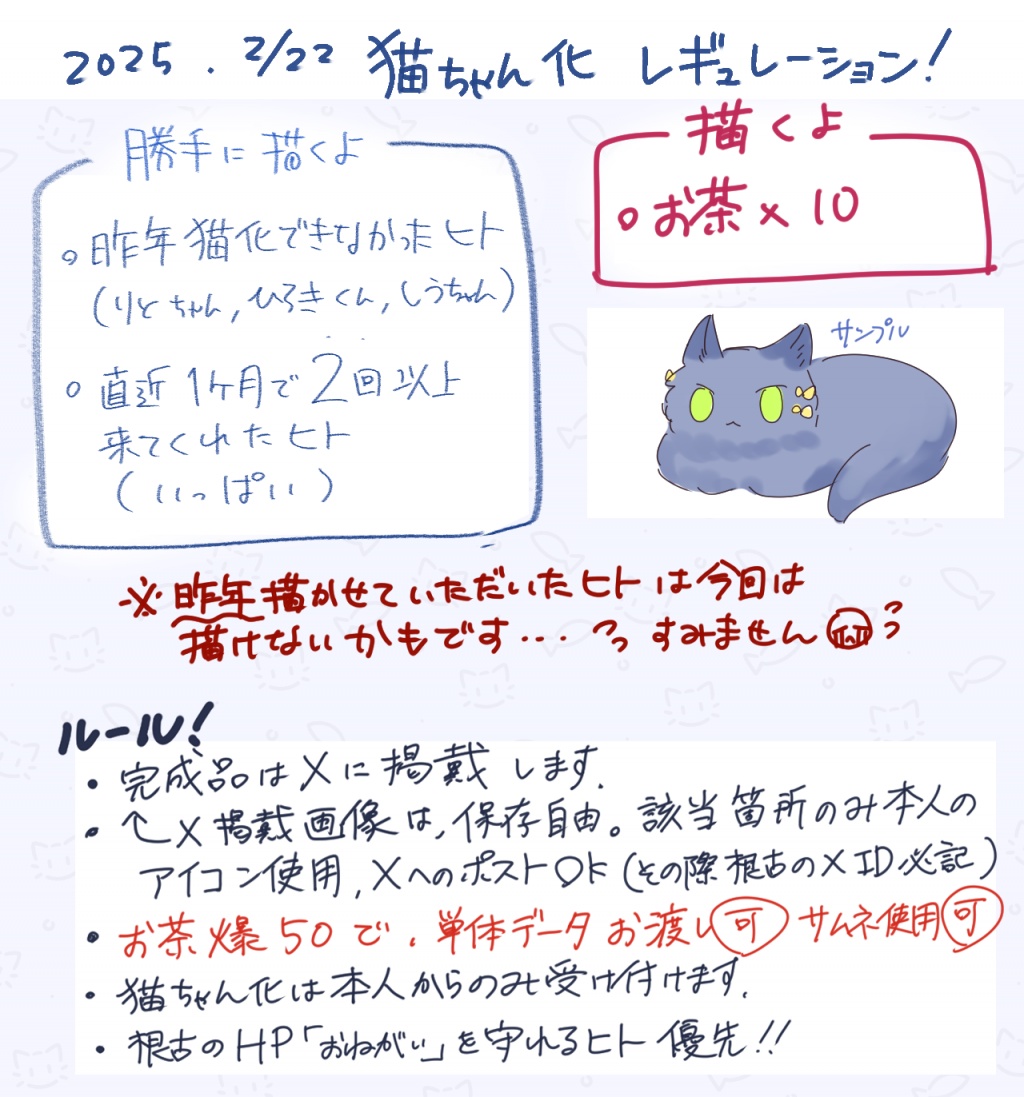 2025.2/22 猫ちゃん化 レギュレーション!
勝手に描くよ
○昨年猫化できなかったヒト
(りとちゃん,ひろきくん,しうちゃん)
○直近1ヶ月で2回以上
来てくれたヒト
(いっぱい)
描くよ
○お茶×10
サンプル
※昨年描かせていただいたヒトは今回は
描けないかもです... すみません
ルール!
・完成品はXに掲載します.
・↑X掲載画像は、保存自由。該当箇所のみ本人の
アイコン使用,XへのポストOK(その際根古のXID必記)
・お茶爆50で、単体データお渡し可 サムネ使用可
・猫ちゃん化は本人からのみ受け付けます.
・根古のHP「おねがい」を守れるヒト優先!!